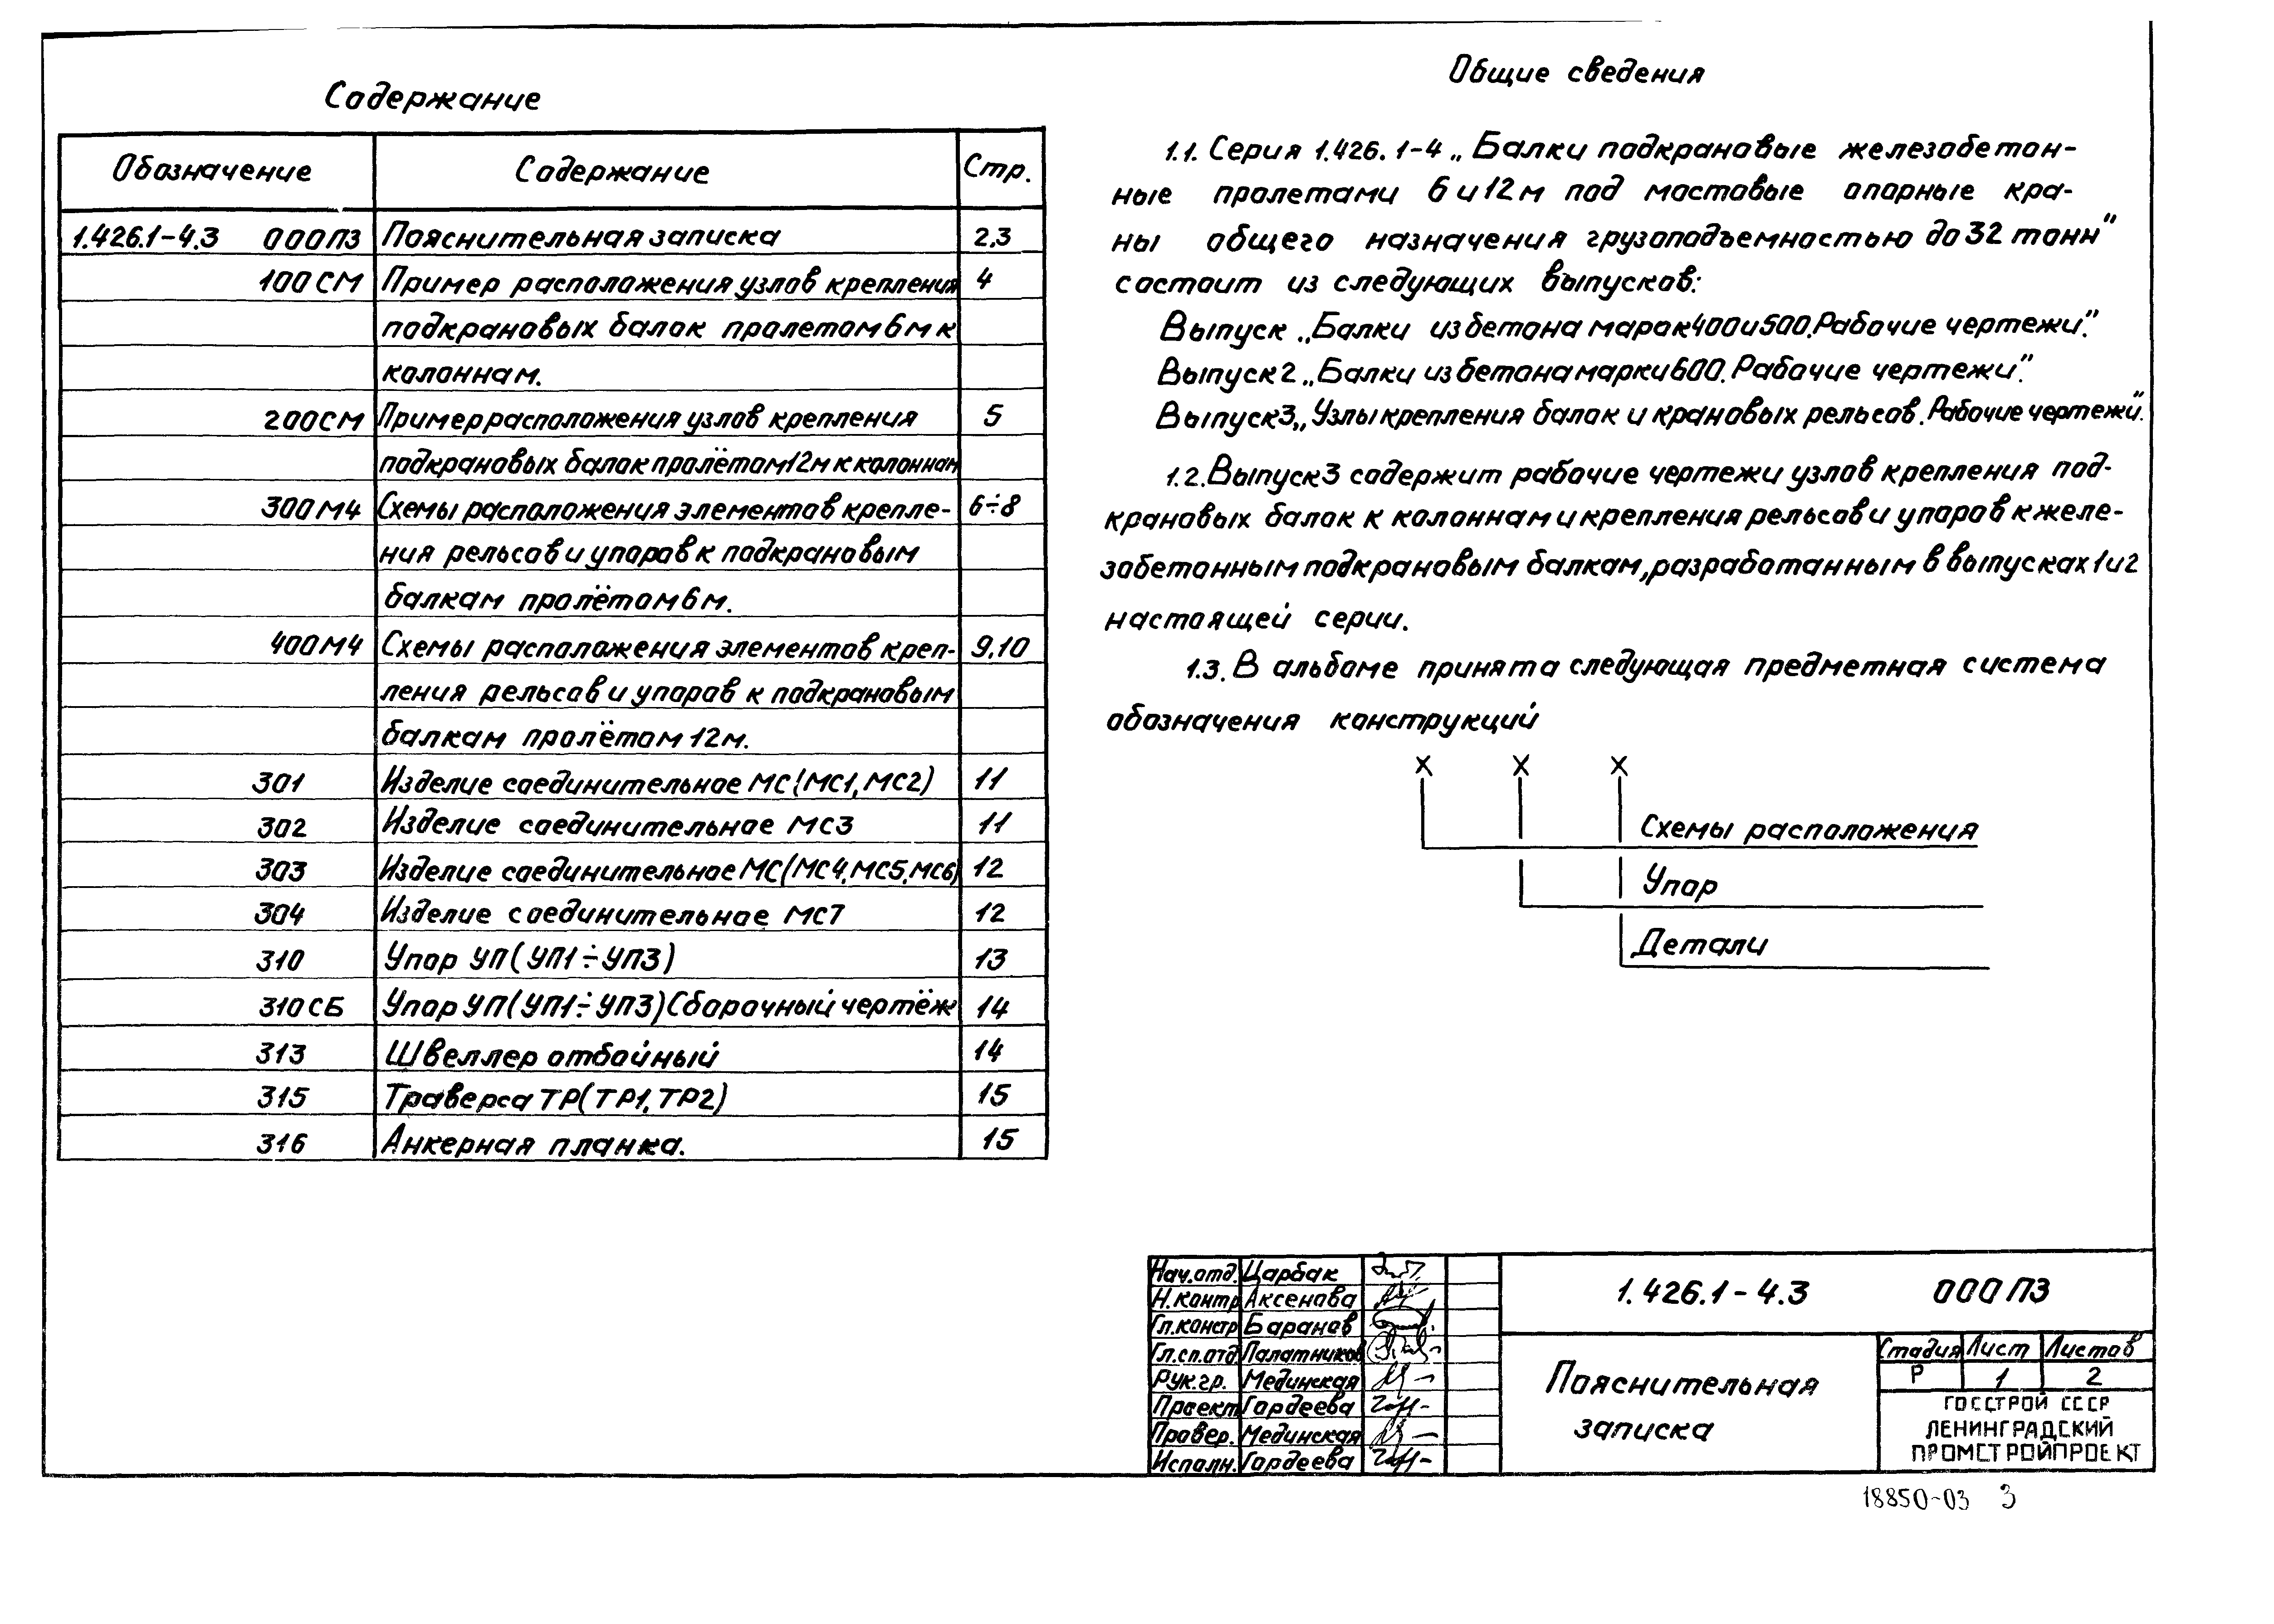 Содержание
Обозначение Содержание Стр.
1.426.1-4.3 000ПЗ Пояснительная записка 2,3
100СМ Пример расположения узлов крепления 4
подкрановых балок пролетом 6м к
колоннам.
200СМ Пример расположения узлов крепления 5
подкрановых балок пролётом 12м к колоннам
300М4 Схемы расположения элементов крепле- 6÷8
ния рельсов и упоров к подкрановым
балкам пролётом 6м.
400М4 Схемы расположения элементов креп- 9,10
ления рельсов и упоров к подкрановым
балкам пролётом 12м.
301 Изделие соединительное МС(МС1, МС2) 11
302 Изделие соединительное МС3 11
303 Изделие соединительное МС(МС4, МС5, МС6) 12
304 Изделие соединительное МС7 12
310 Упор УП(УП1÷УП3) 13
310СБ Упор УП(УП1÷УП3)Сборочный чертёж 14
313 Швеллер отбойный 14
315 Траверса ТР(ТР1, ТР2) 15
316 Анкерная планка. 15
Общие сведения
1.1. Серия 1.426.1-4 „Балки подкрановые железобетон-
ные пролетами 6 и 12м под мостовые опорные кра-
ны общего назначения грузоподъемностью до 32 тонн"
состоит из следующих выпусков:
Выпуск „Балки из бетона марок 400 и 500. Рабочие чертежи".
Выпуск 2 „Балки из бетона марки 600. Рабочие чертежи".
Выпуск 3 „Узлы крепления балок и крановых рельсов. Рабочие чертежи".
1.2. Выпуск 3 содержит рабочие чертежи узлов крепления под-
крановых балок к колоннам и крепления рельсов и упоров к желе-
зобетонным подкрановым балкам, разработанным в выпусках 1 и 2
настоящей серии.
1.3. В альбоме принята следующая предметная система
обозначения конструкций
Х Х Х
Схемы расположения
Упор
Детали
Нач.отд. Царбак
Н.контр Аксенова
Гл.констр Баранов
Гл.сп.отд. Палатников
Рук.гр. Мединская
Проект Гордеева
Провер. Мединская
Исполн. Гордеева
1.426.1-4.3 000ПЗ
Пояснительная
записка
Стадия Лист Листов
Р 1 2
ГОССТРОЙ СССР
ЛЕНИНГРАДСКИЙ
ПРОМСТРОЙПРОЕКТ
18850-03 3